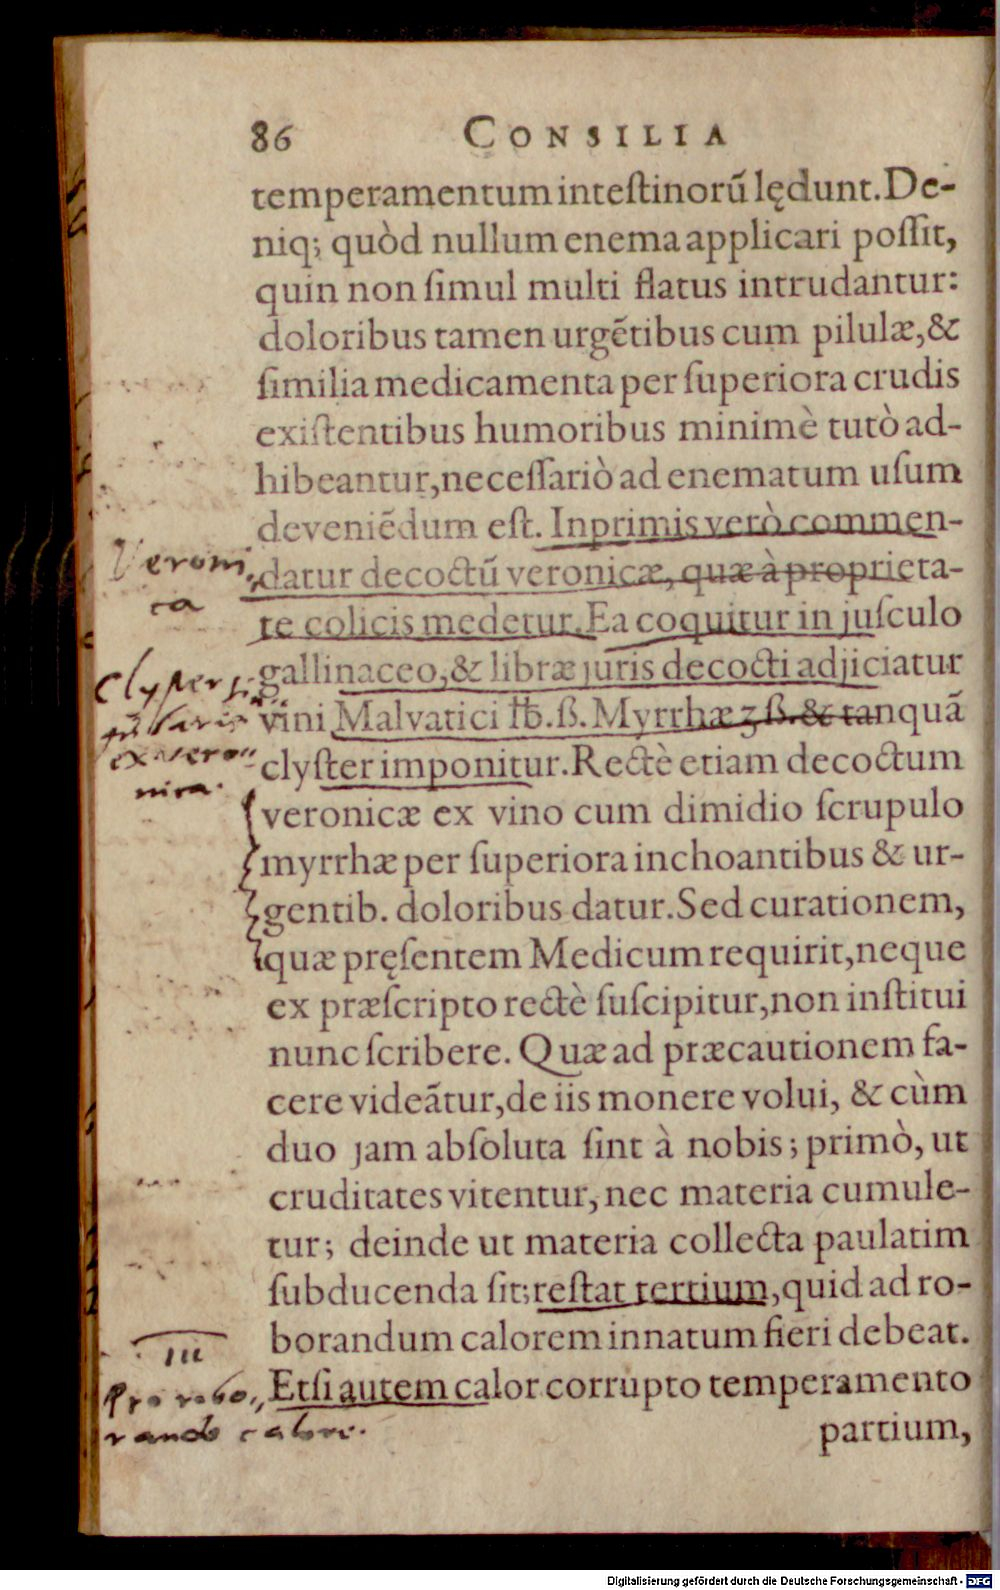 86 CONSILIA
temperamentum inteſtinorũ lędunt. De-
niq; quòd nullum enema applicari poſſit,
quin non ſimul multi flatus intrudantur:
doloribus tamen urgẽtibus cum pilulæ, &
ſimilia medicamenta per ſuperiora crudis
exiſtentibus humoribus minimè tutò ad-
hibeantur, neceſſariò ad enematum uſum
deveniẽdum eſt. Inprimis verò commen-
datur decoctũ veronicæ, quæ à proprieta-
te colicis medetur. Ea coquitur in juſculo
gallinaceo, & libræ juris decocti adjiciatur
vini Malvatici ℔. ß. Myrrhæ ʒ ß. & tanquã
clyſter imponitur. Rectè etiam decoctum
veronicæ ex vino cum dimidio ſcrupulo
myrrhæ per ſuperiora inchoantibus & ur-
gentib. doloribus datur. Sed curationem,
quæ pręſentem Medicum requirit, neque
ex præſcripto rectè ſuſcipitur, non inſtitui
nunc ſcribere. Quæ ad præcautionem fa-
cere videãtur, de iis monere volui, & cùm
duo jam abſoluta ſint à nobis; primò, ut
cruditates vitentur, nec materia cumule-
tur; deinde ut materia collecta paulatim
ſubducenda ſit; reſtat tertium, quid ad ro-
borandum calorem innatum fieri debeat.
Etſi autem calor corrupto temperamento
partium,
Veroni„
ca
ex vero„
nica.
III
Pro robo„
rando calore.
Digitalisierung gefördert durch die Deutsche Forschungsgemeinschaft - DFG